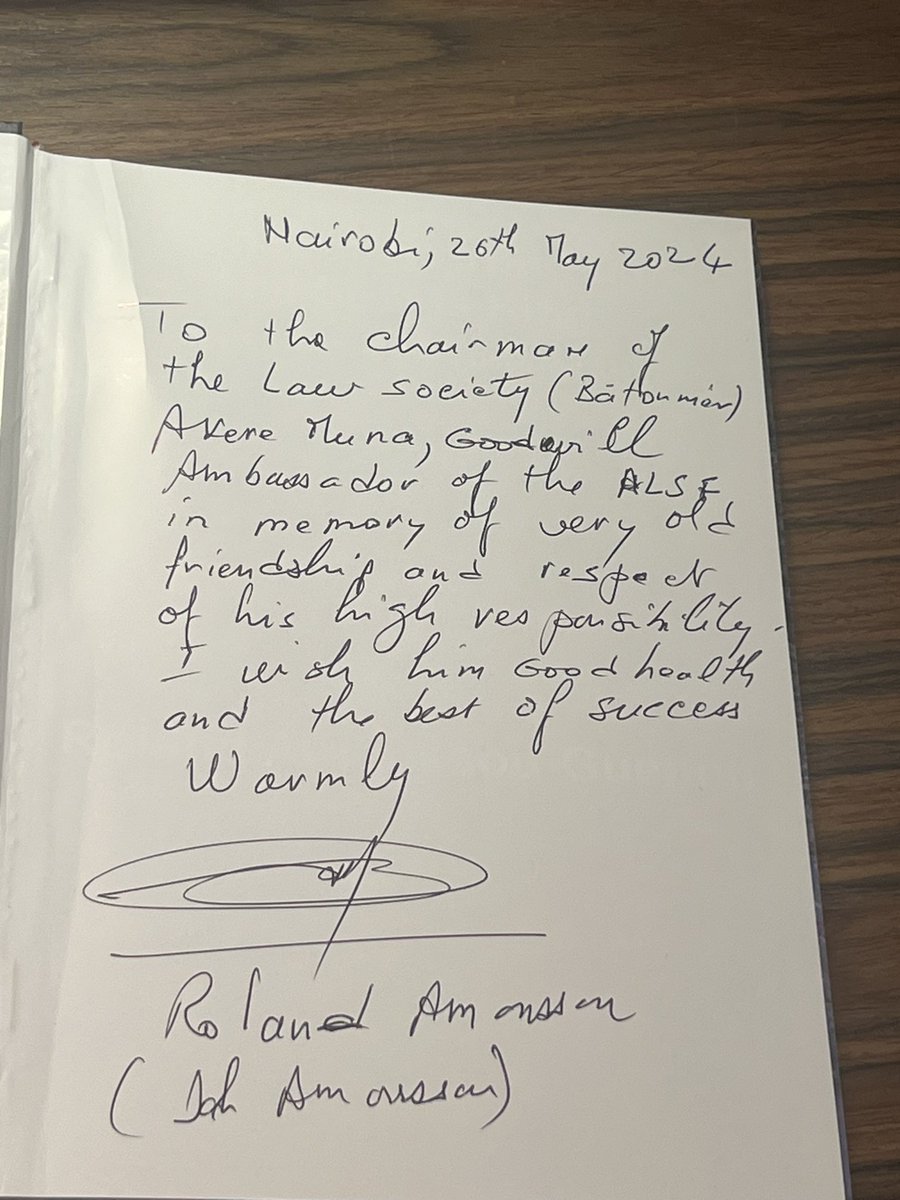 Nairobi, 26th May 2024
To the chairman of
the Law society (Bâtonnier)
Akere Muna, Goodwill
Ambassador of the ALSF
in memory of very old
friendship and respect
of his high responsibility.
I wish him Good health
and the best of success
Warmly
Roland Amoussou
(Amoussou)